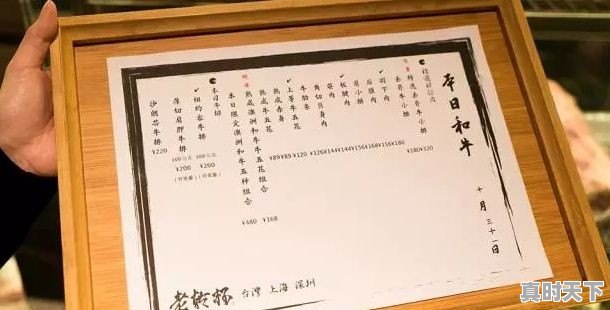 本日和牛
十月三十一日
特选去骨牛小排
去骨牛小排
¥180 ¥120
羽下肉
后腹肉
肩小排
板腱肉
角切贝身肉
¥126 ¥144 ¥144 ¥156 ¥168 ¥156 ¥180
上等牛五花
熟成赤身
熟成牛五花
¥89 ¥89 ¥120
熟成澳洲和牛五花组合
¥168
本日限定澳洲和牛五种组合
¥480
本日牛排
纽约客牛排
100公克
¥260
(秤重量)
厚切肩胛牛排
100公克
¥200
(秤重量)
沙朗芯牛排
¥220
老乾杯 台灣 上海 深圳
真时天下